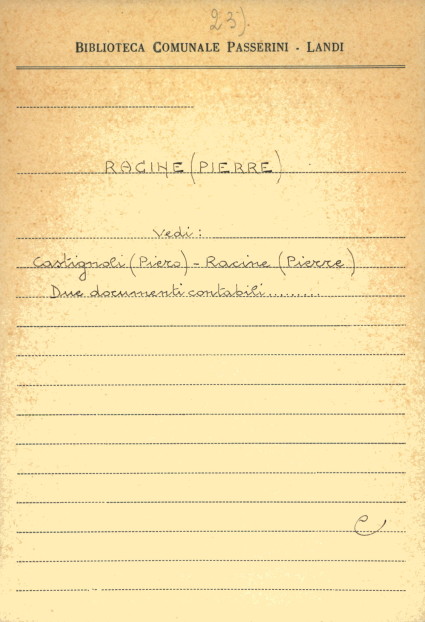 23).
BIBLIOTECA COMUNALE PASSERINI - LANDI
RACINE (PIERRE)
Vedi:
Castignoli (Piero) - Racine (Pierre)
Due documenti contabili.........
C